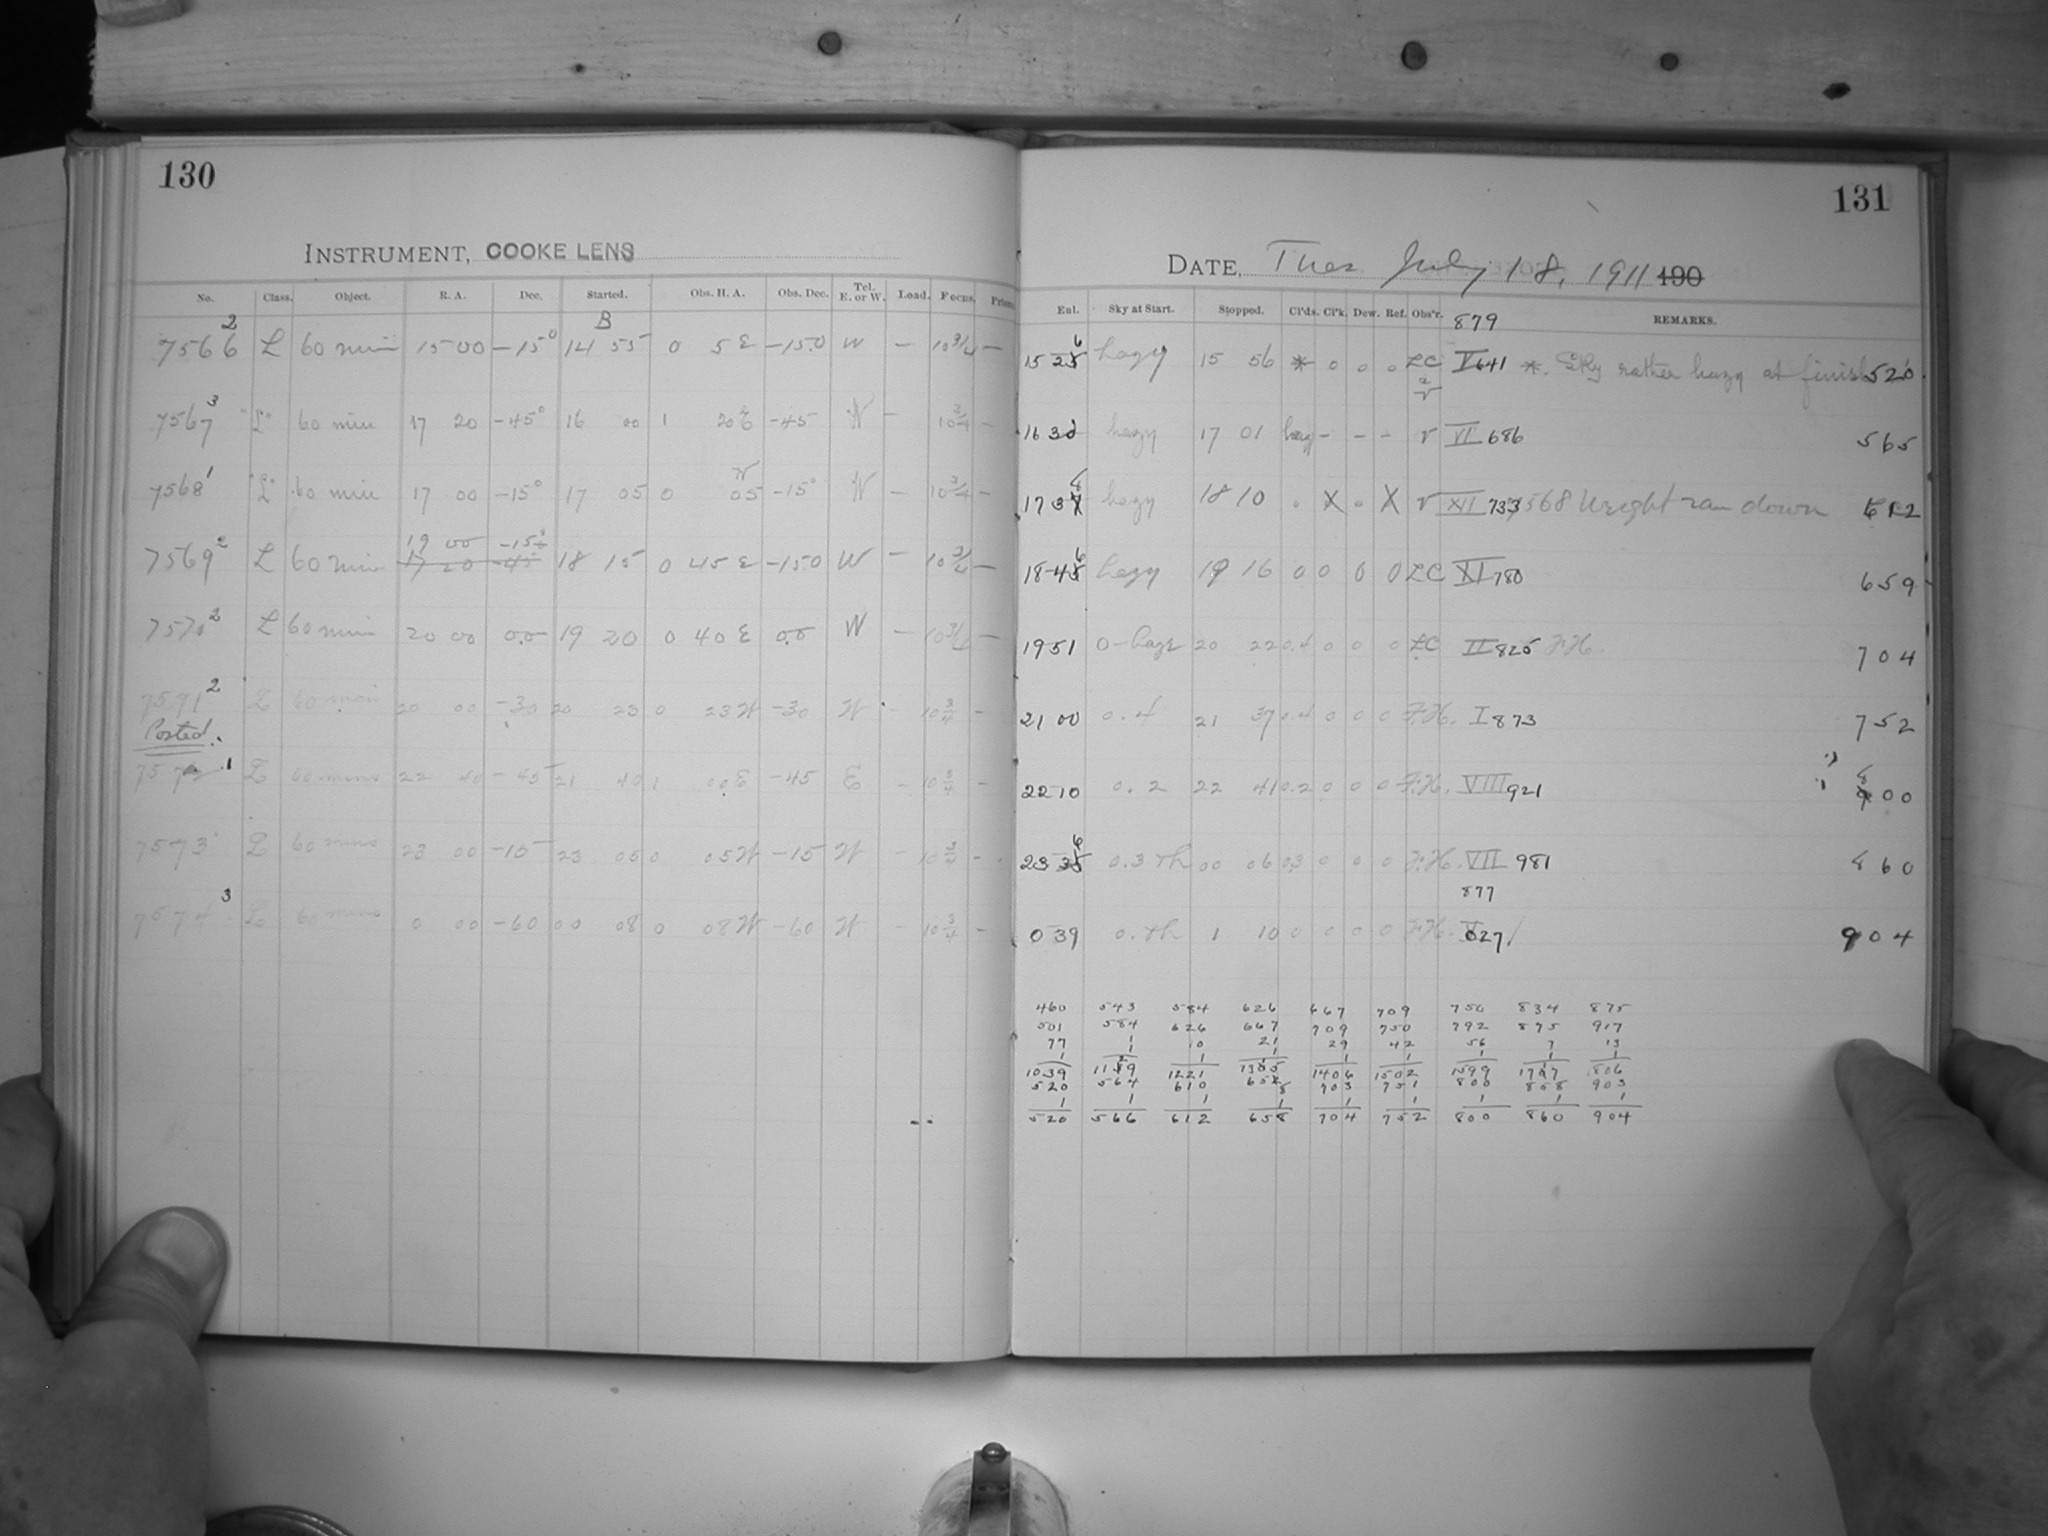 130
INSTRUMENT, COOKE LENS
No. Class. Object. R. A. Dec. Started. Obs. H. A. Obs. Dec. Tel. E. or W. Load. Focus.
B
7566 2 L 60 min 15 00 -15° 14 55 0 5 E -15.0 W - 10 3/4 -
7567 3 "L" 60 min 17 20 -45° 16 00 1 20 E -45 W - 10 3/4 -
7568 1 "L" 60 min 17 00 -15° 17 05 0 05 W -15° W - 10 3/4 -
19 00 -15°
7569 2 L 60 min 17 20 -45 18 15 0 45 E -15.0 W - 10 3/4 -
7570 2 L 60 min 20 00 0.0 19 20 0 40 E 0.0 W - 10 3/4 -
7571 2 L 60 min 20 00 -30 20 23 0 23 W -30 W - 10 3/4 -
Posted.
7572 1 L 60 mins 22 40 -45 21 40 1 00 E -45 E - 10 3/4 -
7573 L 60 mins 23 00 -15 23 05 0 05 W -15 W - 10 3/4 -
7574 3 L 60 mins 0 00 -60 00 08 0 08 W -60 W - 10 3/4 -
131
DATE, Tues July 18, 1911 190
Eul. Sky at Start. Stopped. Cl'ds. Cl'k. Dew. Ref. Obs'r. REMARKS.
879
15 25 6 hazy 15 56 * 0 0 0 LC V 641 *. Sky rather hazy at finish 520
16 30 hazy 17 01 hazy - - - V VI 686 565
17 37 8 hazy 18 10 0 X 0 X V XII 733 7568 Weight ran down 612
18 45 6 hazy 19 16 0 0 0 0 LC XI 780 659
19 51 0-haze 20 22 0.4 0 0 0 LC II 825 F.H. 704
21 00 0.4 21 37 0.4 0 0 0 F.H. I 873 752
22 10 0.2 22 41 0.2 0 0 0 F.H. VIII 921 800
23 35 6 0.3 Th 00 06 03 0 0 0 F.H. VII 981 860
877
0 39 0.Th 1 10 0 0 0 0 F.H. V 027 904
460 543 584 626 667 709 750 834 875
501 584 626 667 709 750 792 875 917
77 1 10 21 29 42 56 7 13
1 1 1 1 1 1 1 1 1
1039 1129 1221 1315 1406 1502 1599 1717 1806
520 564 610 658 703 751 800 858 903
1 1 1 1 1 1 1 1 1
520 566 612 658 704 752 800 860 904